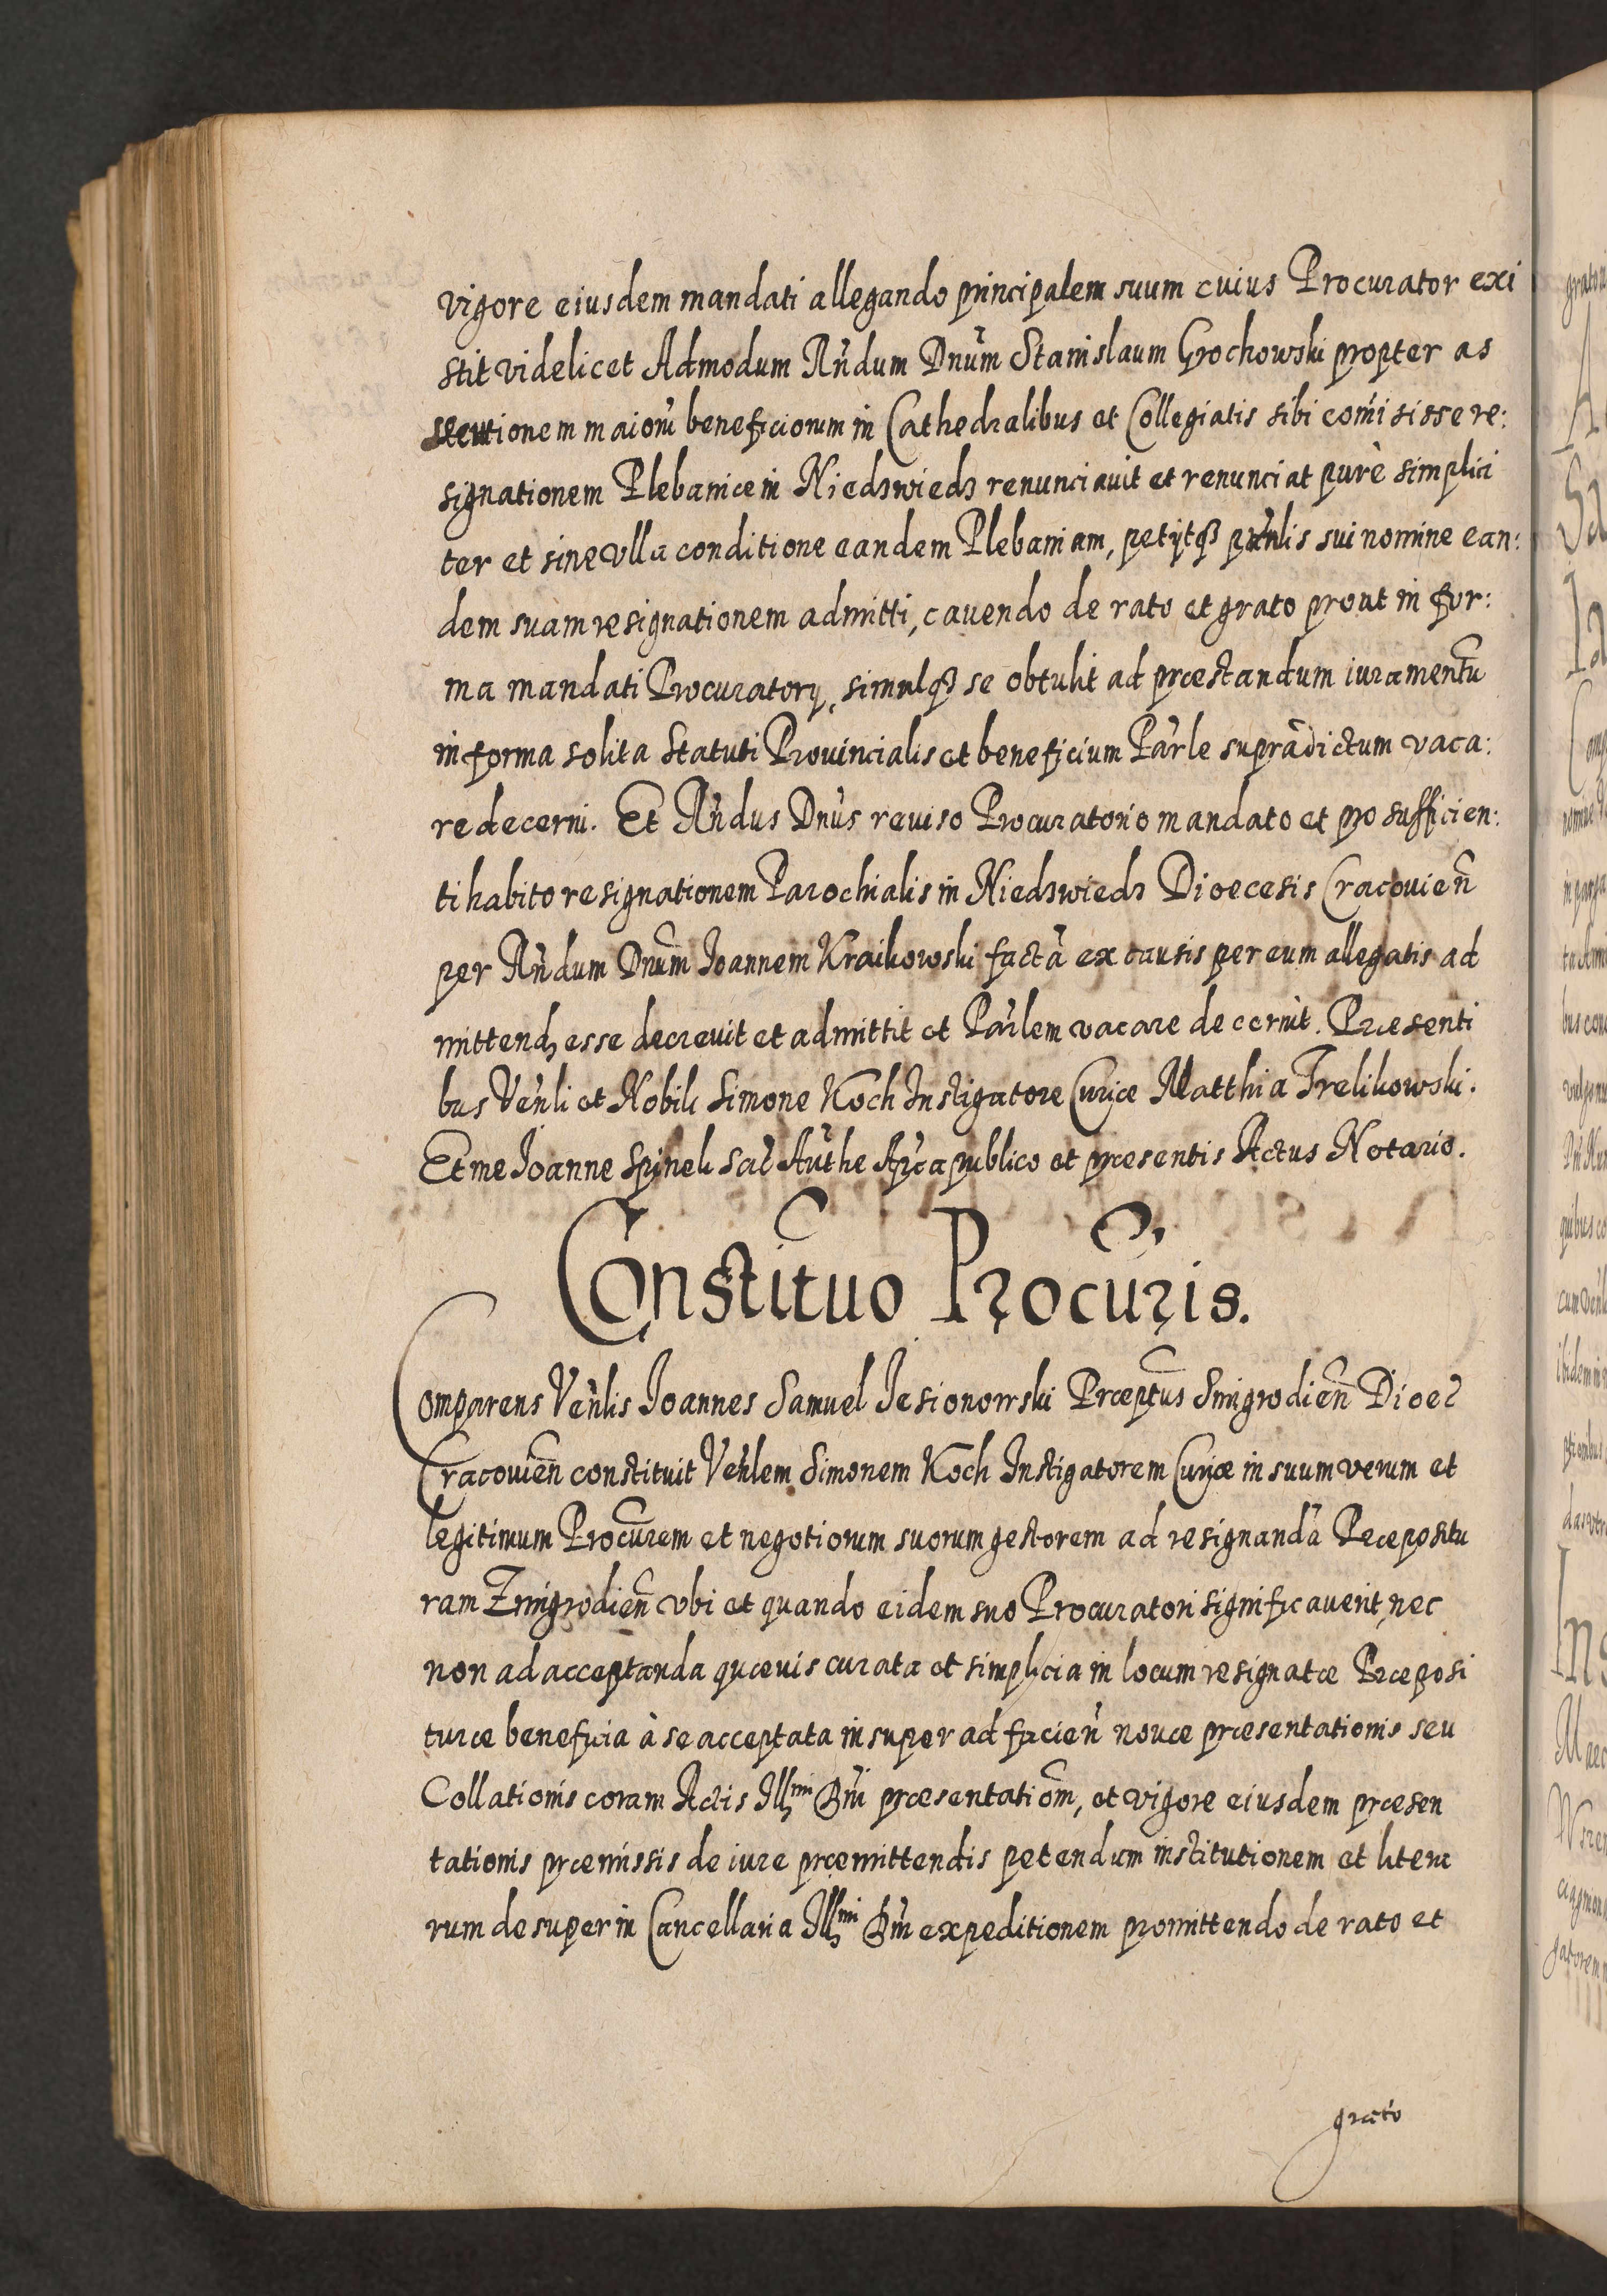 vigore eiusdem mandati allegando principalem suum cuius Procurator exi
stit videlicet Admodum Rńdum Dnum Stanislaum Grochowski propter as
secutionem maioru beneficiorum in Cathedralibus et Collegiatis sibi comisisse re:
signationem Plebaniæ in Niedzwiedz renunciavit et renunciat purè simplici
ter et sine vlla conditione eandem Plebaniam, petijtqз prnlis sui nomine ean:
dem suam resignationem admitti, cauendo de rato et grato prout in for:
ma mandati Procuratorij, simulqз se obtulit ad præstandum iuramentũ
in forma solita Statuti Prouincialis et beneficium Parle supradictum vaca:
re decerni. Et Rńdus Dnus reuiso Procuratorio mandato et pro sufficien:
ti habito resignationem Parochialis in Niedzwiedz Dioecesis Cracouień
per Rńdum Dnum Ioannem Kraikowski factã ex causis per eum allegatis ad
mittendꝫ esse decreuit et admittit et Parlem vacare decernit. Præsenti
bus Venli et Nobili Simone Koch Instigatore Curiæ Matthia Trelikowski.
Et me Ioanne Spineli Sac Authe Aplca publico et præsentis Actus Notario.
Constituo Procuris.
Comparens Venlis Ioannes Samuel Iesionowski Præptus Smigrodień Dioec
Cracouień constituit Venlem Simonem Koch Instigatorem Curiæ in suum verum et
legitimum Procurem et negotiorum suorum gestorem ad resignandã Præpositu
ram Zmigrodień vbi et quando eidem suo Procuratori significauerit, nec
non ad acceptanda quæuis curata et simplicia in locum resignatæ Præposi
turæ beneficia à se acceptata insuper ad facień nouæ præsentationis seu
Collationis coram Actis Illmi Dni præsentatiom, et vigore eiusdem præsen
tationis præmissis de iure præmittendis petendum institutionem et litera
rum desuper in Cancellaria Illmi Dni expeditionem promittendo de rato et
grato